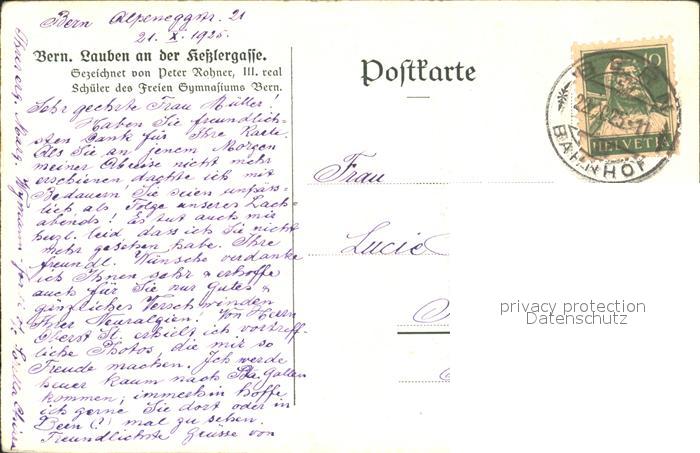 Bern Alpeneggstr. 21
21. X. 1925.
Bern. Lauben an der Keßlergasse.
Gezeichnet von Peter Rohner, III. real
Schüler des Freien Gymnasiums Bern.
Sehr geehrte Frau Müller!
Haben Sie freundlich-
sten Dank für Ihre Karte.
Als Sie an jenem Morgen
meiner Abreise nicht mehr
erschienen dachte ich mit
Bedauern Sie seien unpäss-
lich als Folge unseres Lach-
abends! Es tut auch mir
herzl. leid dass ich Sie nicht
mehr gesehen habe. Ihre
freundl. Wünsche verdanke
ich Ihnen sehr & erhoffe
auch für Sie nur Gutes &
gänzliches Verschwinden
Ihrer Neuralgien! Von Herrn
Oberst H. erhielt ich vortreff-
liche Photos, die mir so
Freude machen. Ich werde
heuer kaum nach St. Gallen
kommen; immerhin hoffe
ich gerne Sie dort oder in
Bern (!) mal zu sehen.
Freundlichste Grüsse von
Postkarte
Frau
Lucie
10
HELVETIA
BERN
BAHNHOF
privacy protection
Datenschutz